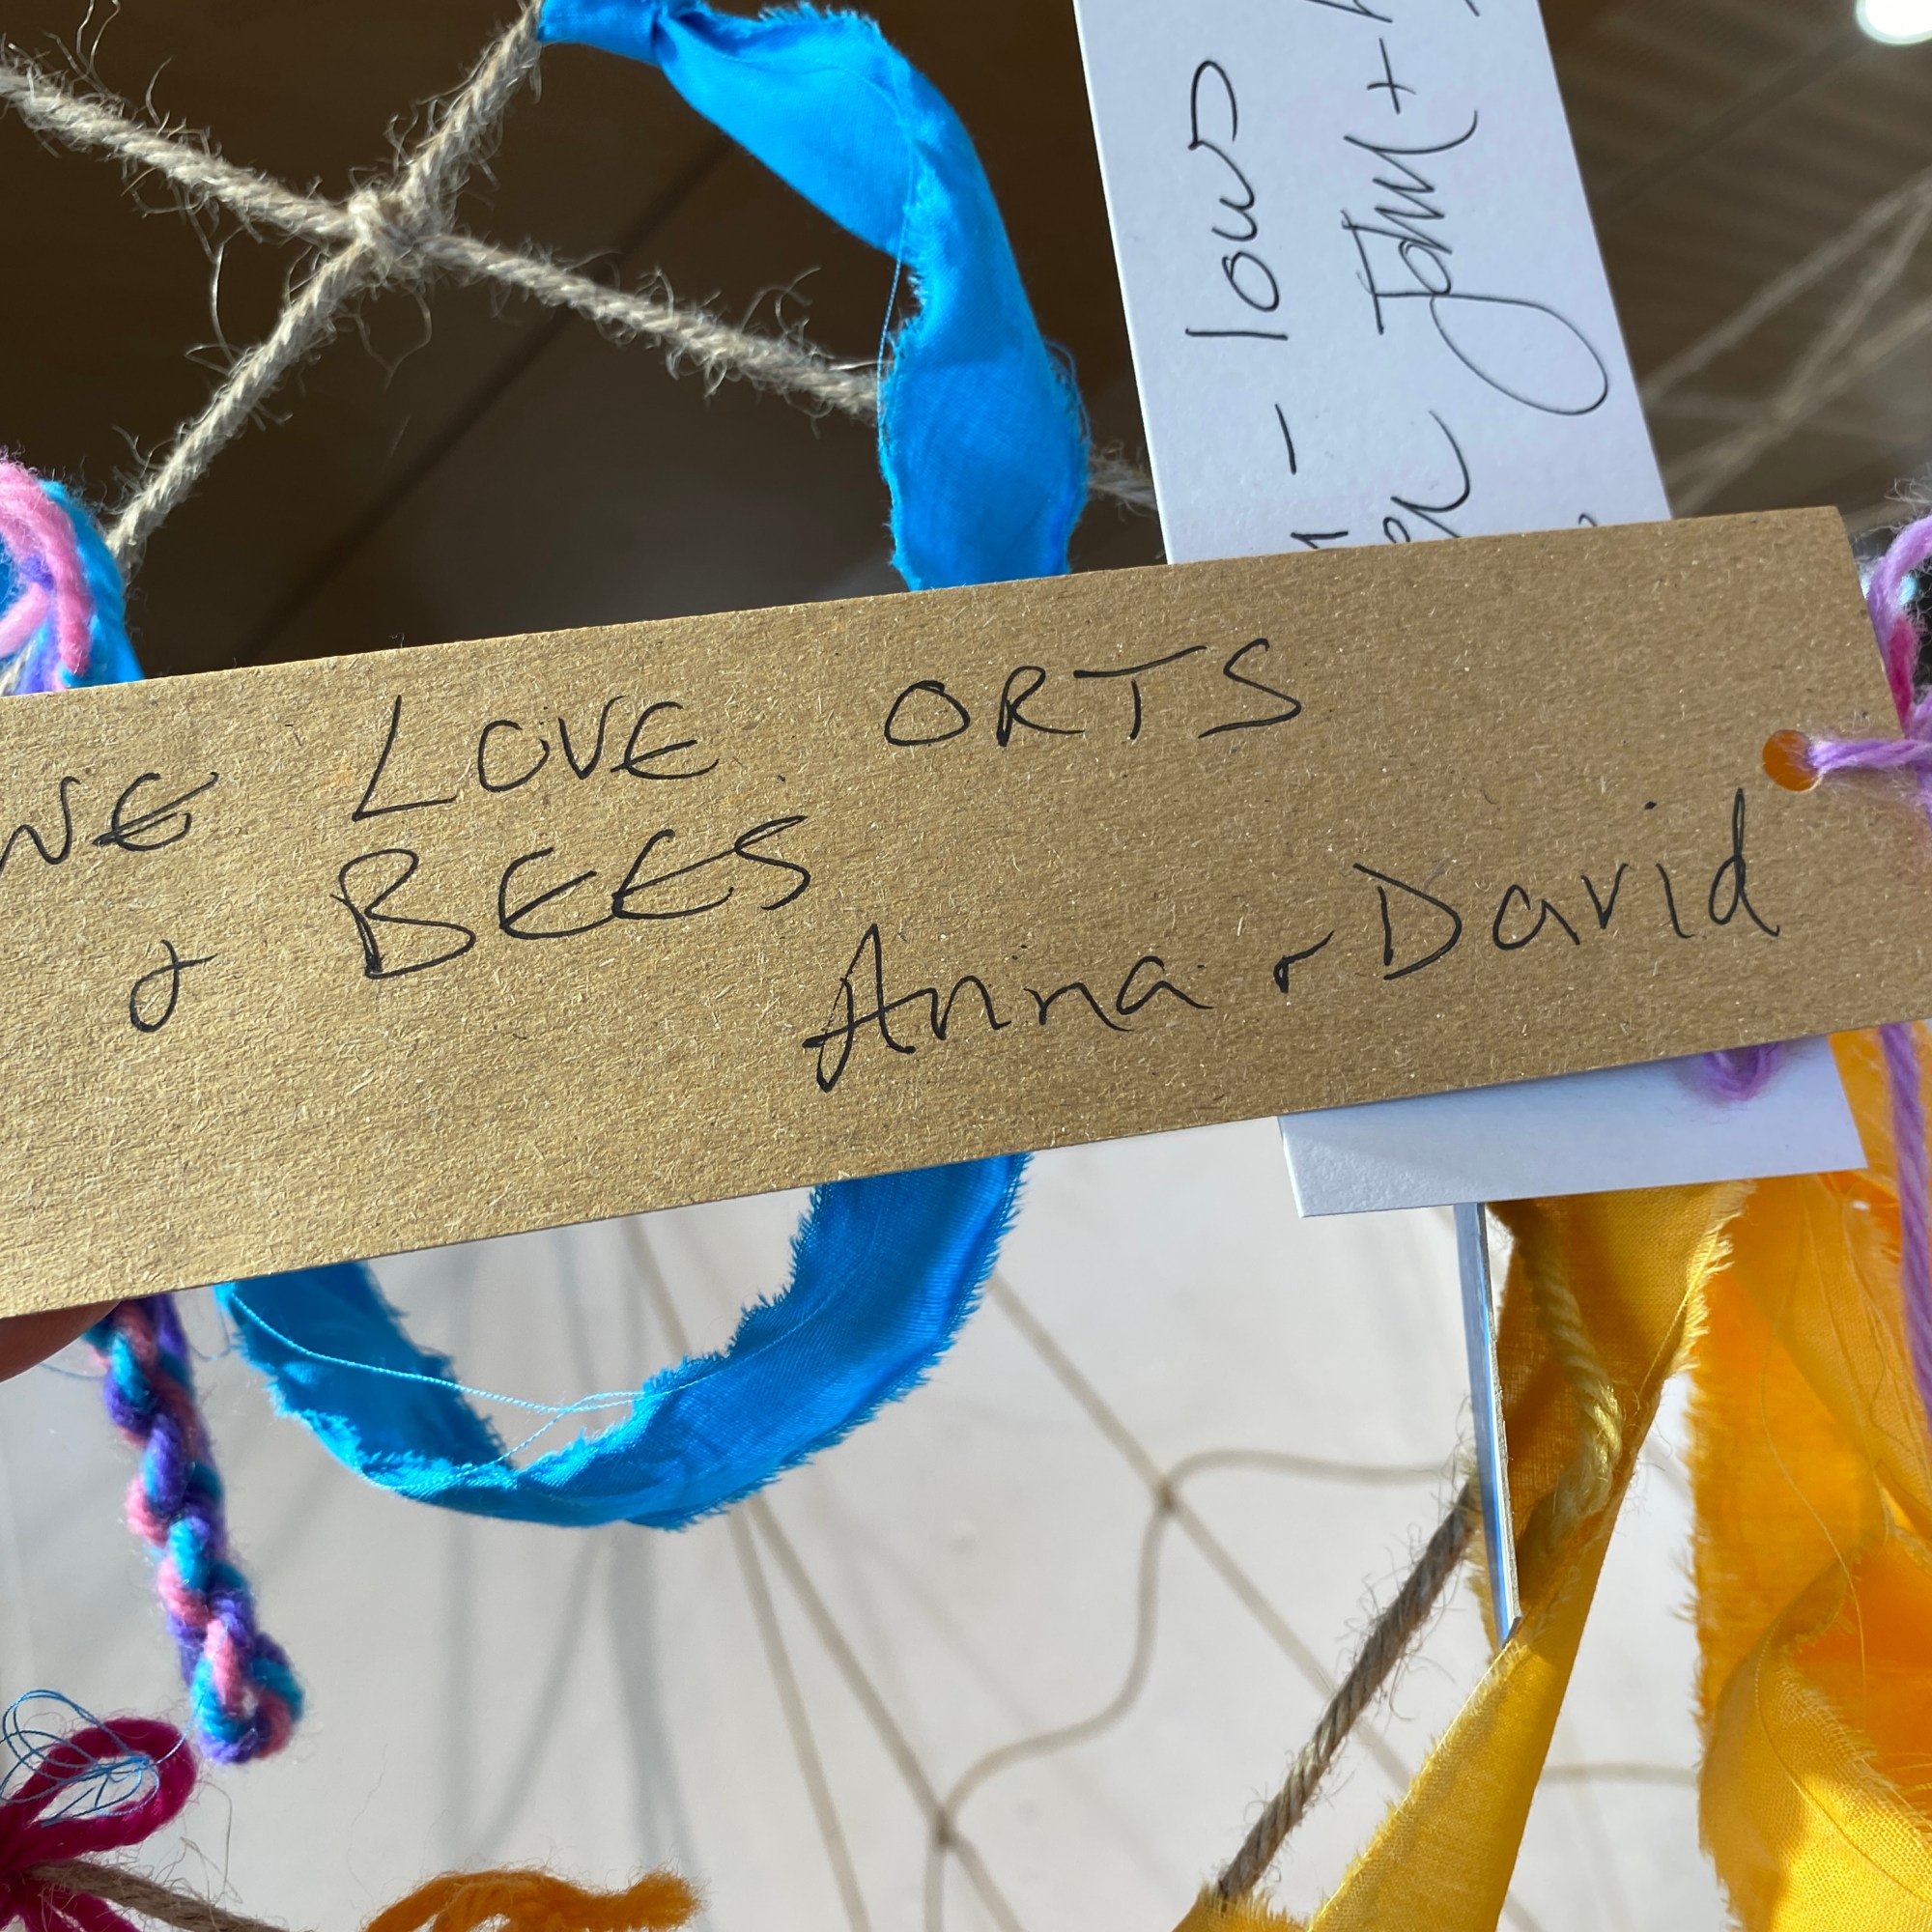 WE LOVE ORTS
& BEES
Anna & David
- lows
John +